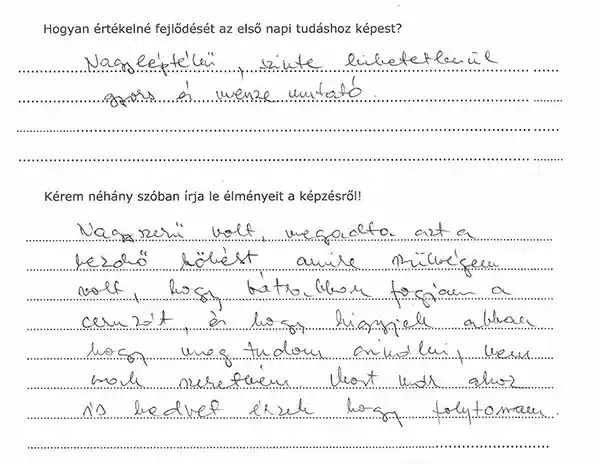 Hogyan értékelné fejlődését az első napi tudáshoz képest?
Nagyléptékű, szinte hihetetlenül
gyors és messze mutató.
Kérem néhány szóban írja le élményeit a képzésről!
Nagyszerű volt, megadta azt a
kezdő lökést amire szükségem
volt, hogy bátrabban fogjam a
ceruzát, és hogy higgyjek abban
hogy meg tudom csinálni, nem
csak szeretném. Most már ahoz
is kedvet érzek hogy folytassam.